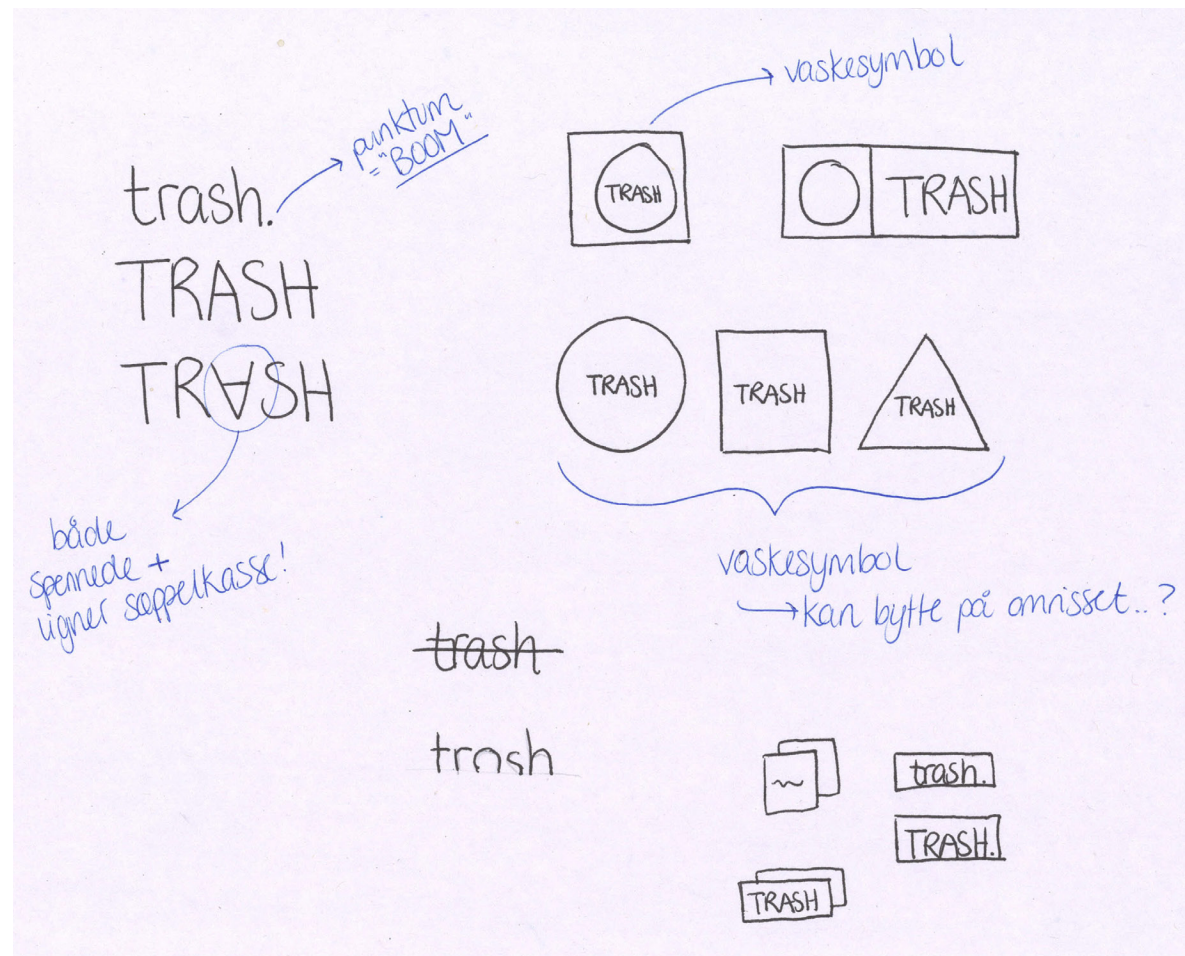 trash.
punktum
= "BOOM"
TRASH
TR∀SH
både
spennede +
ligner søppelkasse!
vaskesymbol
TRASH
TRASH
TRASH
TRASH
TRASH
vaskesymbol
→ kan bytte på omrisset..?
trash
trash
trash.
TRASH.
TRASH